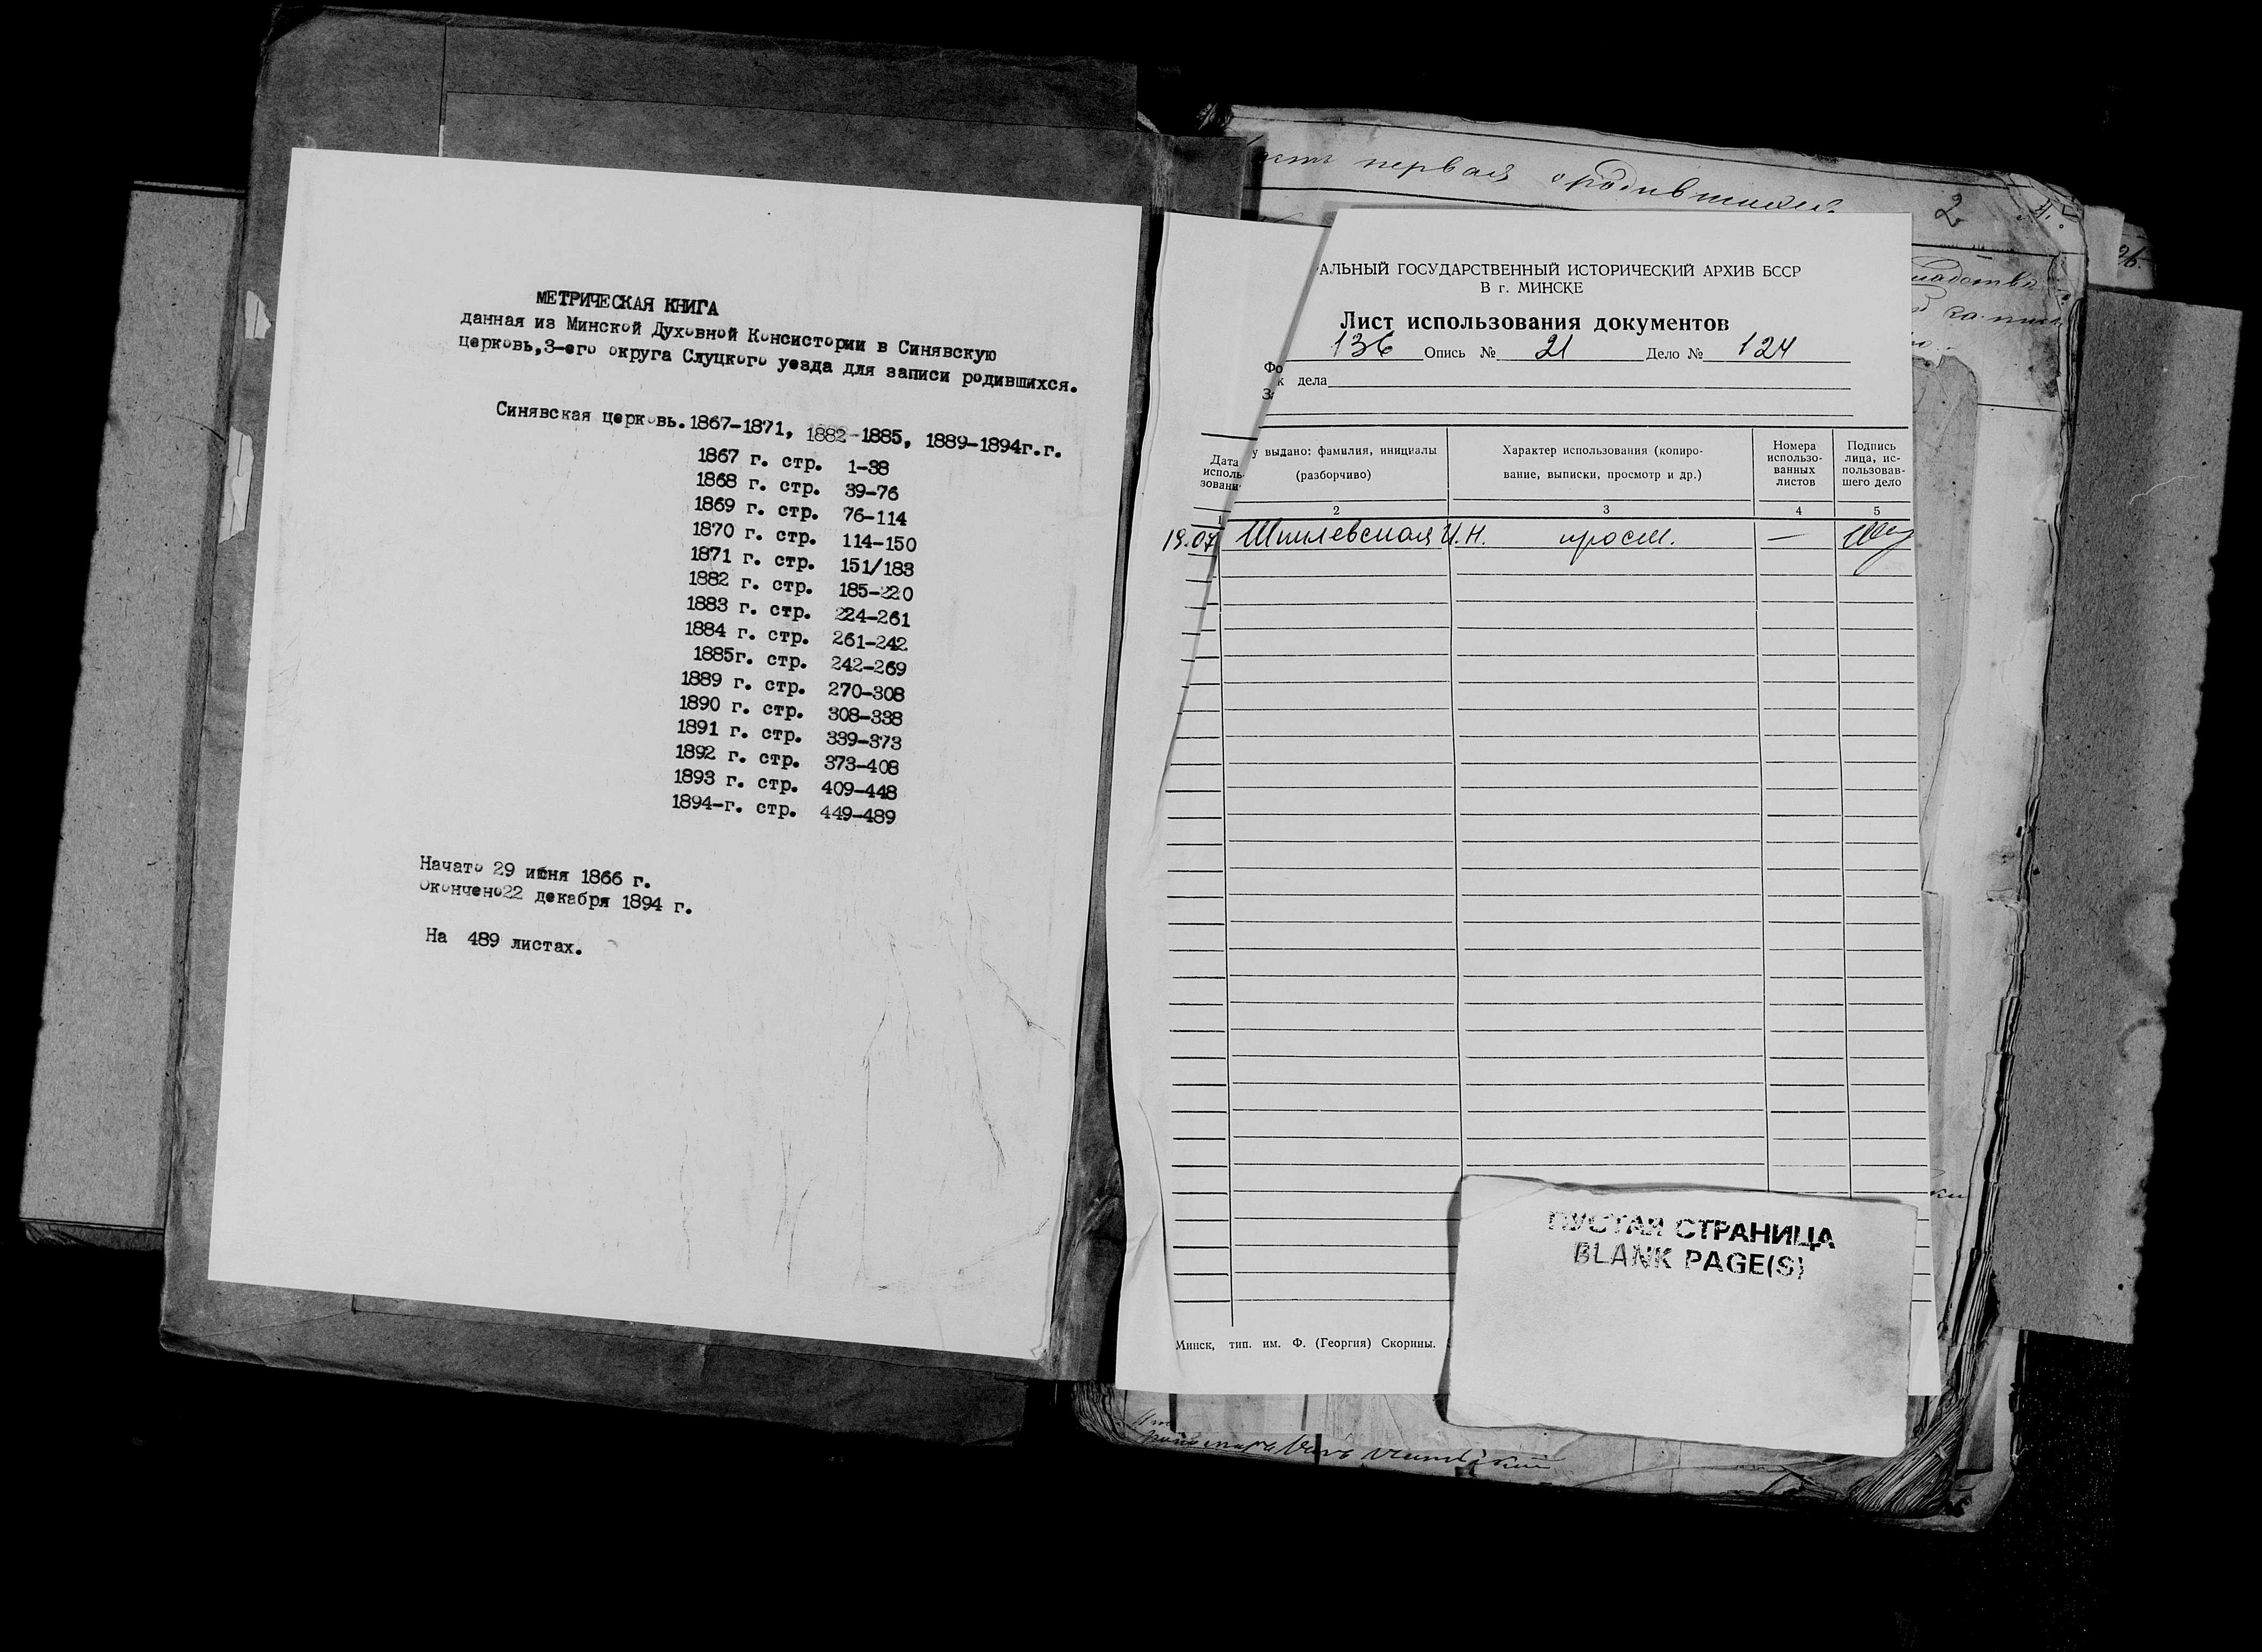 МЕТРИЧЕСКАЯ КНИГА
данная из Минской Духовной Консистории в Синявскую
церковь,3-его округа Слуцкого уезда для записи родившихся.
Синявская церковь.1867-1871, 1882-1885, 1889-1894г.г.
1867 г. стр. 1-38
1868 г. стр. 39-76
1869 г. стр. 76-114
1870 г. стр. 114-150
1871 г. стр. 151/183
1882 г. стр. 185-220
1883 г. стр. 224-261
1884 г. стр. 261-242
1885г. стр. 242-269
1889 г. стр. 270-308
1890 г. стр. 308-338
1891 г. стр. 339-373
1892 г. стр. 373-408
1893 г. стр. 409-448
1894-г. стр. 449-489
Начато 29 июня 1866 г.
Окончено22 декабря 1894 г.
На 489 листах.
первая о родившихся 2
АЛЬНЫЙ ГОСУДАРСТВЕННЫЙ ИСТОРИЧЕСКИЙ АРХИВ БССР
В г. МИНСКЕ
Лист использования документов
Фо 136 Опись № 21 Дело № 124
За к дела
Дата исполь- зовани
у выдано: фамилия, инициалы (разборчиво)
Характер использования (копиро- вание, выписки, просмотр и др.)
Номера использо- ванных листов
Подпись лица, ис- пользовав- шего дело
1 2 3 4 5
19.07 Шпилевская И.Н. просм. —
ПУСТАЯ СТРАНИЦА
BLANK PAGE(S)
Минск, тип. им. Ф. (Георгия) Скорины.